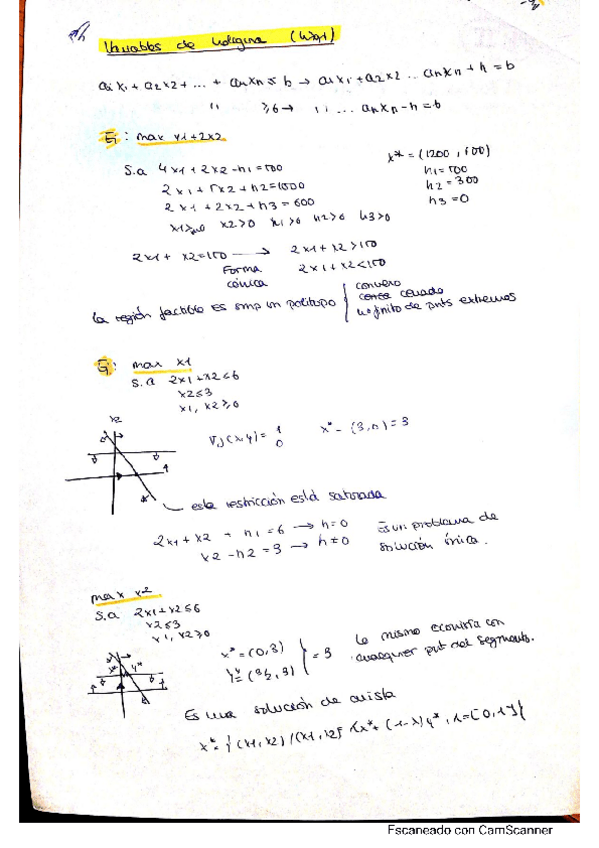 Variables de holgura (h≥0)
a1x1 + a2x2 + ... + anxn ≤ b → a1x1 + a2x2 ... anxn + h = b
" ≥b → " ... anxn - h = b
Ej: max x1+2x2
S.a 4x1 + 2x2 - h1 =
2x1 + x2 + h2 =
2x1 + 2x2 + h3 = 600
x2>0 h2>0 h3>0
x* = (1200, 600)
h1 =
h2 = 300
h3 = 0
2x1 + x2 = 100 → 2x1 + x2 > 100
Forma 2x1 + x2 < 100
cónica
La región factible es smp un politopo
convexo
cerrado
nº finito de pnts extremos
Ej: max x1
S.a 2x1 + x2 ≤ 6
x2 ≤ 3
x1, x2 ≥ 0
x2
(x,y) = 1 0
x* = (3,0) = 3
esta restricción está saturada
2x1 + x2 + h1 = 6 → h = 0
x2 - h2 = 3 → h ≠ 0
Es un problema de
solución única.
max x2
S.a 2x1 + x2 ≤ 6
x2 ≤ 3
x1, x2 ≥ 0
x* = (0,3)
y* = (3/2, 3)
= 3
Lo mismo ocurriría con
cualquier pnt del segmento.
Es una solución de arista
x* = {(x1,x2) / (x1,x2) = λx* + (1-λ)y*, λ=[0,1]}
Escaneado con CamScanner